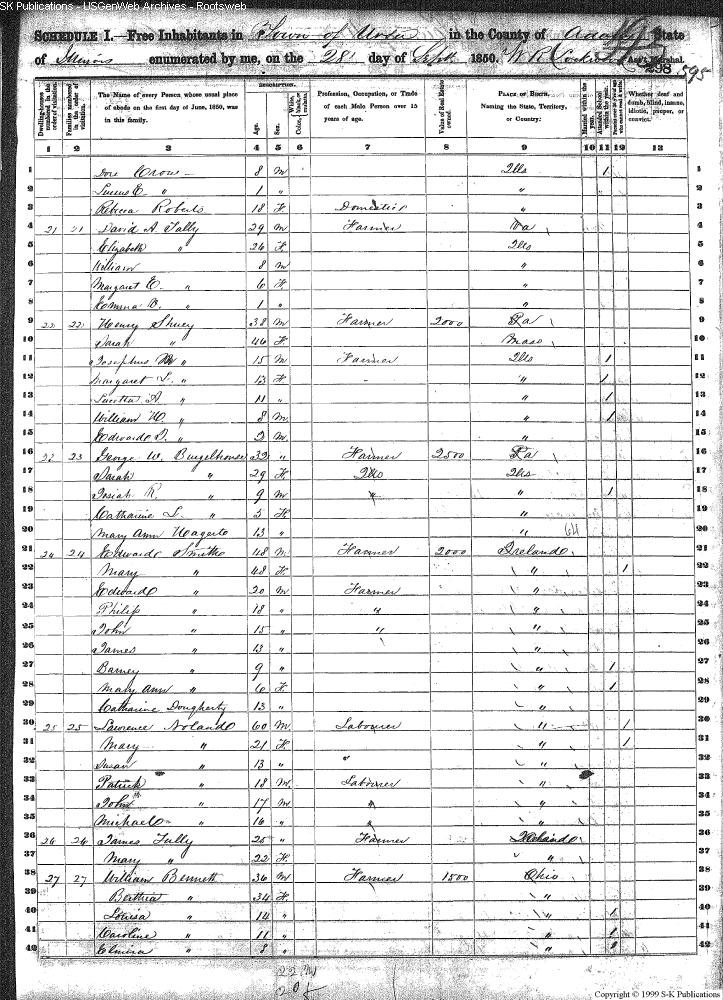 SK Publications - USGenWeb Archives - Rootsweb
SCHEDULE I.—Free Inhabitants in Town of in the County of Adams State
of Illinois enumerated by me, on the 28 day of Sept 1850. Ass't Marshal.
298 595
Dwelling-houses numbered in the order of visitation.
Families numbered in the order of visitation.
The Name of every Person whose usual place of abode on the first day of June, 1850, was in this family.
DESCRIPTION.
Age.
Sex.
Color, White, black, or mulatto.
Profession, Occupation, or Trade of each Male Person over 15 years of age.
Value of Real Estate owned.
PLACE OF BIRTH. Naming the State, Territory, or Country.
Married within the year.
Attended School within the year.
Persons over 20 y'rs of age who cannot read & write.
Whether deaf and dumb, blind, insane, idiotic, pauper, or convict.
1 2 3 4 5 6 7 8 9 10 11 12 13
1 Crow 8 M Ills 1 1
2 " 1 " " 2
3 Rebecca Roberts 18 F Domestic " 3
4 21 21 David A. Tally 29 M Farmer Va 4
5 Elizabeth " 26 F Ills 5
6 William 8 M " 6
7 Margaret E. " 6 F " 7
8 Emma " 1 " " 8
9 22 22 Henry Shuey 38 M Farmer 2000 Pa 9
10 Sarah " 46 F Mass 10
11 Josephus " 15 M Farmer Ills 1 11
12 Margaret L. " 13 F - " 1 12
13 A. " 11 " " 1 13
14 William " 8 M " 1 14
15 Edward " 2 M " 15
16 23 George W. 32 " Farmer 2500 Pa 16
17 Sarah " 29 F Ills Ills 17
18 Josiah R. " 9 M " " 1 18
19 Catharine L. " 5 F " 19
20 Mary Ann 13 " " 20
21 24 24 Edward Smith 48 M Farmer 2000 Ireland 21
22 Mary " 48 F " 1 22
23 Edward " 20 M Farmer " 23
24 Philip " 18 " " " 24
25 John " 15 " " " 25
26 James " 13 " " 26
27 Barney " 9 " " 1 27
28 Mary Ann " 6 F " 1 28
29 Catharine Dougherty 13 " " 29
30 25 25 Lawrence Noland 60 M Labourer " 1 30
31 Mary " 21 F " 1 31
32 Susan " 13 " " " 32
33 Patrick " 18 M Labourer " 33
34 John " 17 M " " 34
35 Michael " 16 " " " 35
36 26 26 James Tully 25 " Farmer Ireland 36
37 Mary " 22 F " 37
38 27 27 William Bennett 36 M Farmer 1500 Ohio 38
39 " 34 F " 39
40 Louisa " 14 " " 1 40
41 Caroline " 11 " " 1 41
42 Elmira " 8 " " 1 42
Copyright © 1999 S-K Publications